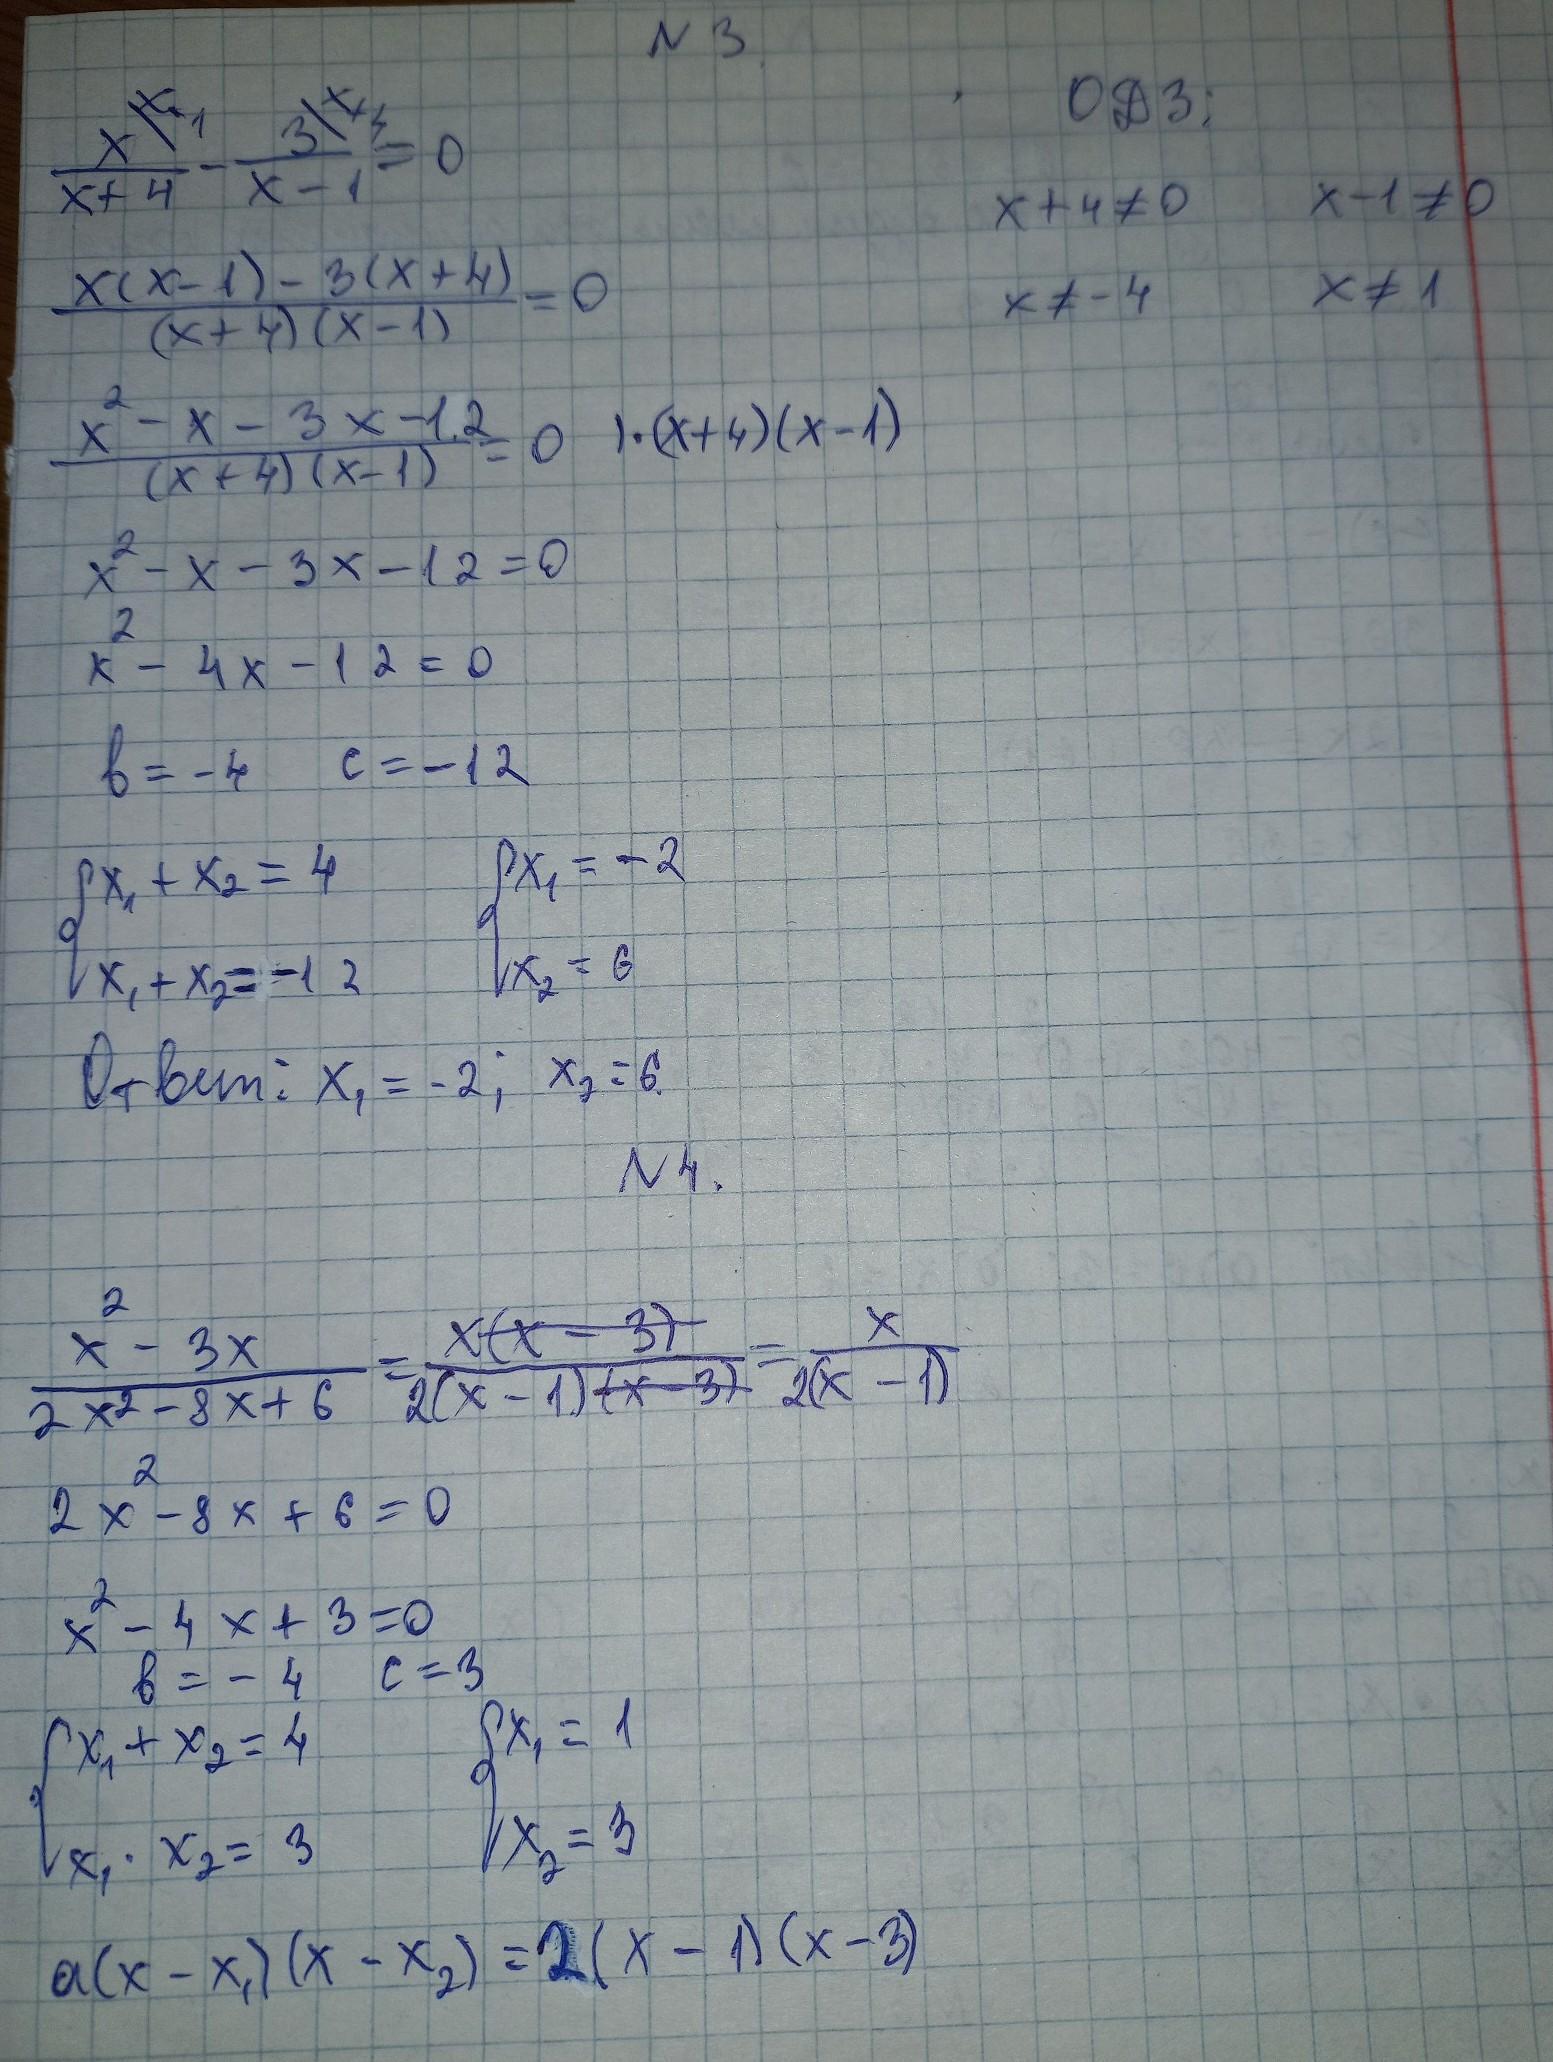 N 3.
ОДЗ:
x\x-1 / x+4 - 3\x+4 / x-1 = 0
x+4≠0 x-1≠0
x(x-1)-3(x+4) / (x+4)(x-1) = 0
x≠-4 x≠1
x²-x-3x-12 / (x+4)(x-1) = 0 |·(x+4)(x-1)
x²-x-3x-12=0
x²-4x-12=0
в=-4 c=-12
{x₁+x₂=4 {x₁=-2
x₁+x₂=-12 x₂=6
Ответ: x₁=-2; x₂=6.
N 4.
x²-3x / 2x²-8x+6 = x(x-3) / 2(x-1)(x-3) = x / 2(x-1)
2x²-8x+6=0
x²-4x+3=0
в=-4 c=3
{x₁+x₂=4 {x₁=1
x₁·x₂=3 x₂=3
a(x-x₁)(x-x₂)=2(x-1)(x-3)